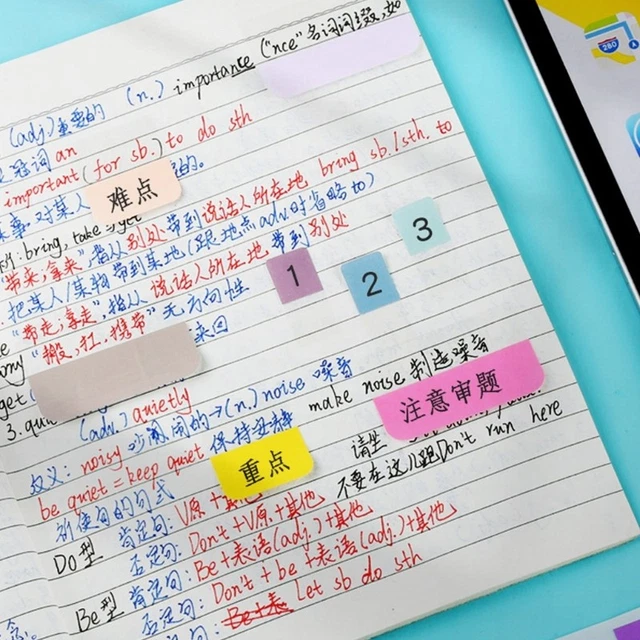 (adj.)重要的 (n.) importance ("nce"名词词缀,如
冠词 an
important (for sb.) to do sth
难点
事 对某人 的。
bring, take get
"带来,拿来",指从别处带到说话人所在地 bring sb./sth. to
把某人/某物带到某地(跟地点adv.时省略to)
"带走;拿走",指从说话人所在地带到别处
"搬,扛,携带"无方向性
1
2
3
来回
get
3.
(adv.) quietly
noisy 吵闹的→(n.) noise 噪音
make noise 制造噪音
注意审题
反义:
be quiet = keep quiet 保持安静
重点
请坐
祈使句的句式
不要在这儿跑 Don't run here
DO型 肯定句: V原+其他
否定句: Don't+V原+其他
Be型 肯定句: Be+表语(adj.)+其他
否定句: Don't+be+表语(adj.)+其他
Let sb do sth
280